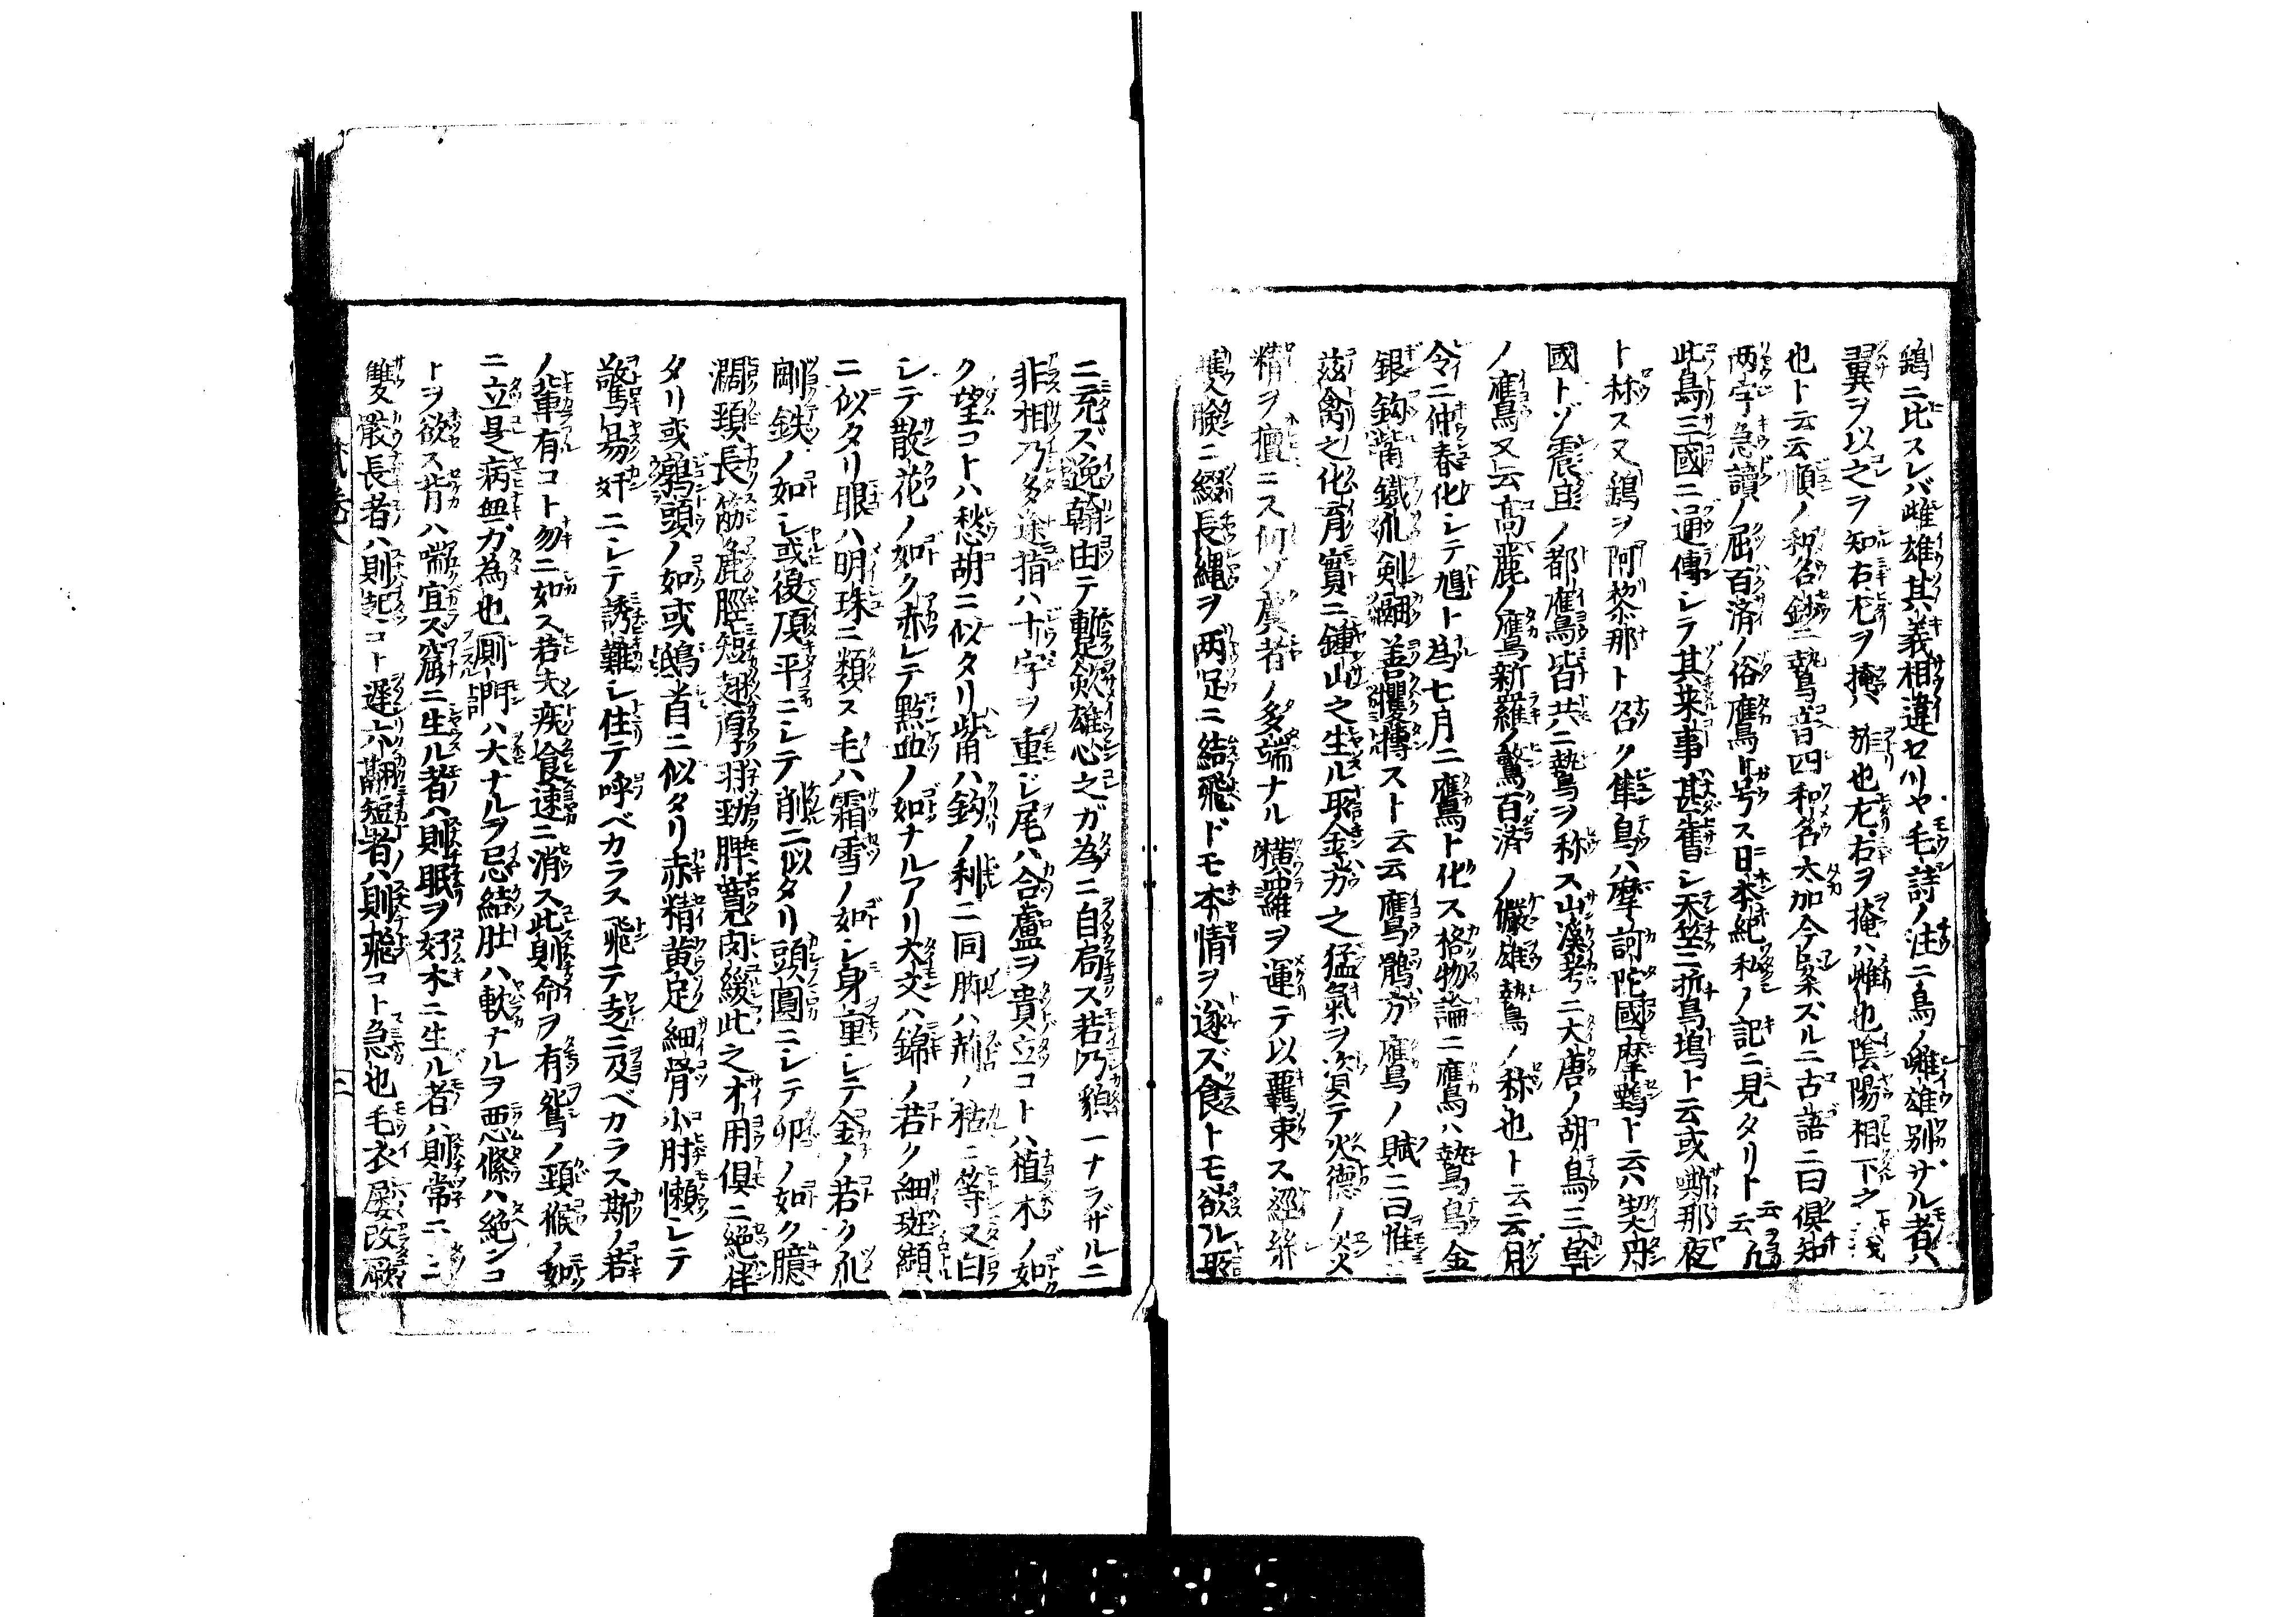 鶏ニ比スレバ雌雄其義相違セリヤ毛詩ノ注ニ鳥ノ雌雄別ザル者ハ
翼ヲ以之ヲ知右左ヲ掩ハ雄也左右ヲ掩ハ雌也陰陽相下之義
也ト云云順ノ和名鈔ニ鷙音四和名太加今案ズルニ古語ニ曰倶知
両字急讀ノ屈百済ノ俗鷹鳥号ス日本紀私ノ記ニ見タリト云云凢
此鳥三國ニ通傳シテ其来事甚舊シ天竺ニ折鳥塢ト云或嘶那夜
ト称ス又鷄ヲ阿黎那ト召ク隼鳥ハ摩訶陀國摩鶏ト云六契丹
國トゾ震旦ノ都鷹鳥皆共ニ鷙鳥ヲ称ス山渓考ニ大唐ノ胡鳥三皐
ノ鷹鳥又云高麗ノ鷹新羅ノ鷲百済ノ儼雄鷙鳥ノ称也ト云云月
令ニ仲春化シテ鳩ト為七月ニ鷹ト化ス格物論ニ鷹鳥ハ鷙鳥鳥金
銀鈎觜鐵爪剣翮善攫摶スト云云鷹鳥鶻方鷹鳥ノ賦ニ曰惟
茲禽之化育實ニ鍾山之生ル所金方之猛氣ヲ資テ火德ノ炎
精ヲ擅ニス何ゾ虞者ノ多端ナル横羅ヲ運テ以羈束ス經絲
雙瞼ニ綴長縄ヲ両足ニ結飛ドモ本情ヲ遂ズ食トモ欲ル所
ニ充ズ逸翰由テ暫歛雄心之ガ為ニ自局ス若乃貌一ナラザルニ
非相乃多途指ハ十字ヲ重ジ尾ハ合盧ヲ貴立コトハ植木ノ如
ク望コトハ愁胡ニ似タリ觜ハ鈎ノ利ニ同脚ハ荊ノ枯ニ等又白
シテ散花ノ如ク赤シテ點血ノ如ナルアリ大文ハ錦ノ若ク細斑纈
ニ似タリ眼ハ明珠ニ類ス毛ハ霜雪ノ如シ身重シテ金ノ若ク爪
剛鉄ノ如シ或復頂平ニシテ削ニ似タリ頭圓ニシテ卵ノ如ク臆
濶頸長筋麁脛短翅厚羽勁髀寛肉緩此之才用倶ニ絶伴
タリ或鶉頭ノ如或鴟首ニ似タリ赤精黄足細骨小肘懶シテ
驚易奸ニシテ誘難シ住テ呼ベカラス飛テ走ニ及ベカラス斯ノ若
ノ輩有コト勿ニ如ス若夫疾食速ニ消ス此則命ヲ有鴛ノ頸猴ノ如
ニ立是病無ガ為也厠門ハ大ナルヲ忌結肚ハ軟ナルヲ悪絛ハ絶ンコ
トヲ欲ス背ハ喘宜ズ窟ニ生ル者ハ則眠ヲ好木ニ生ル者ハ則常ニ立
雙骹長者ハ則起コト遅六翮短者ハ則飛コト急也毛衣屡改厥